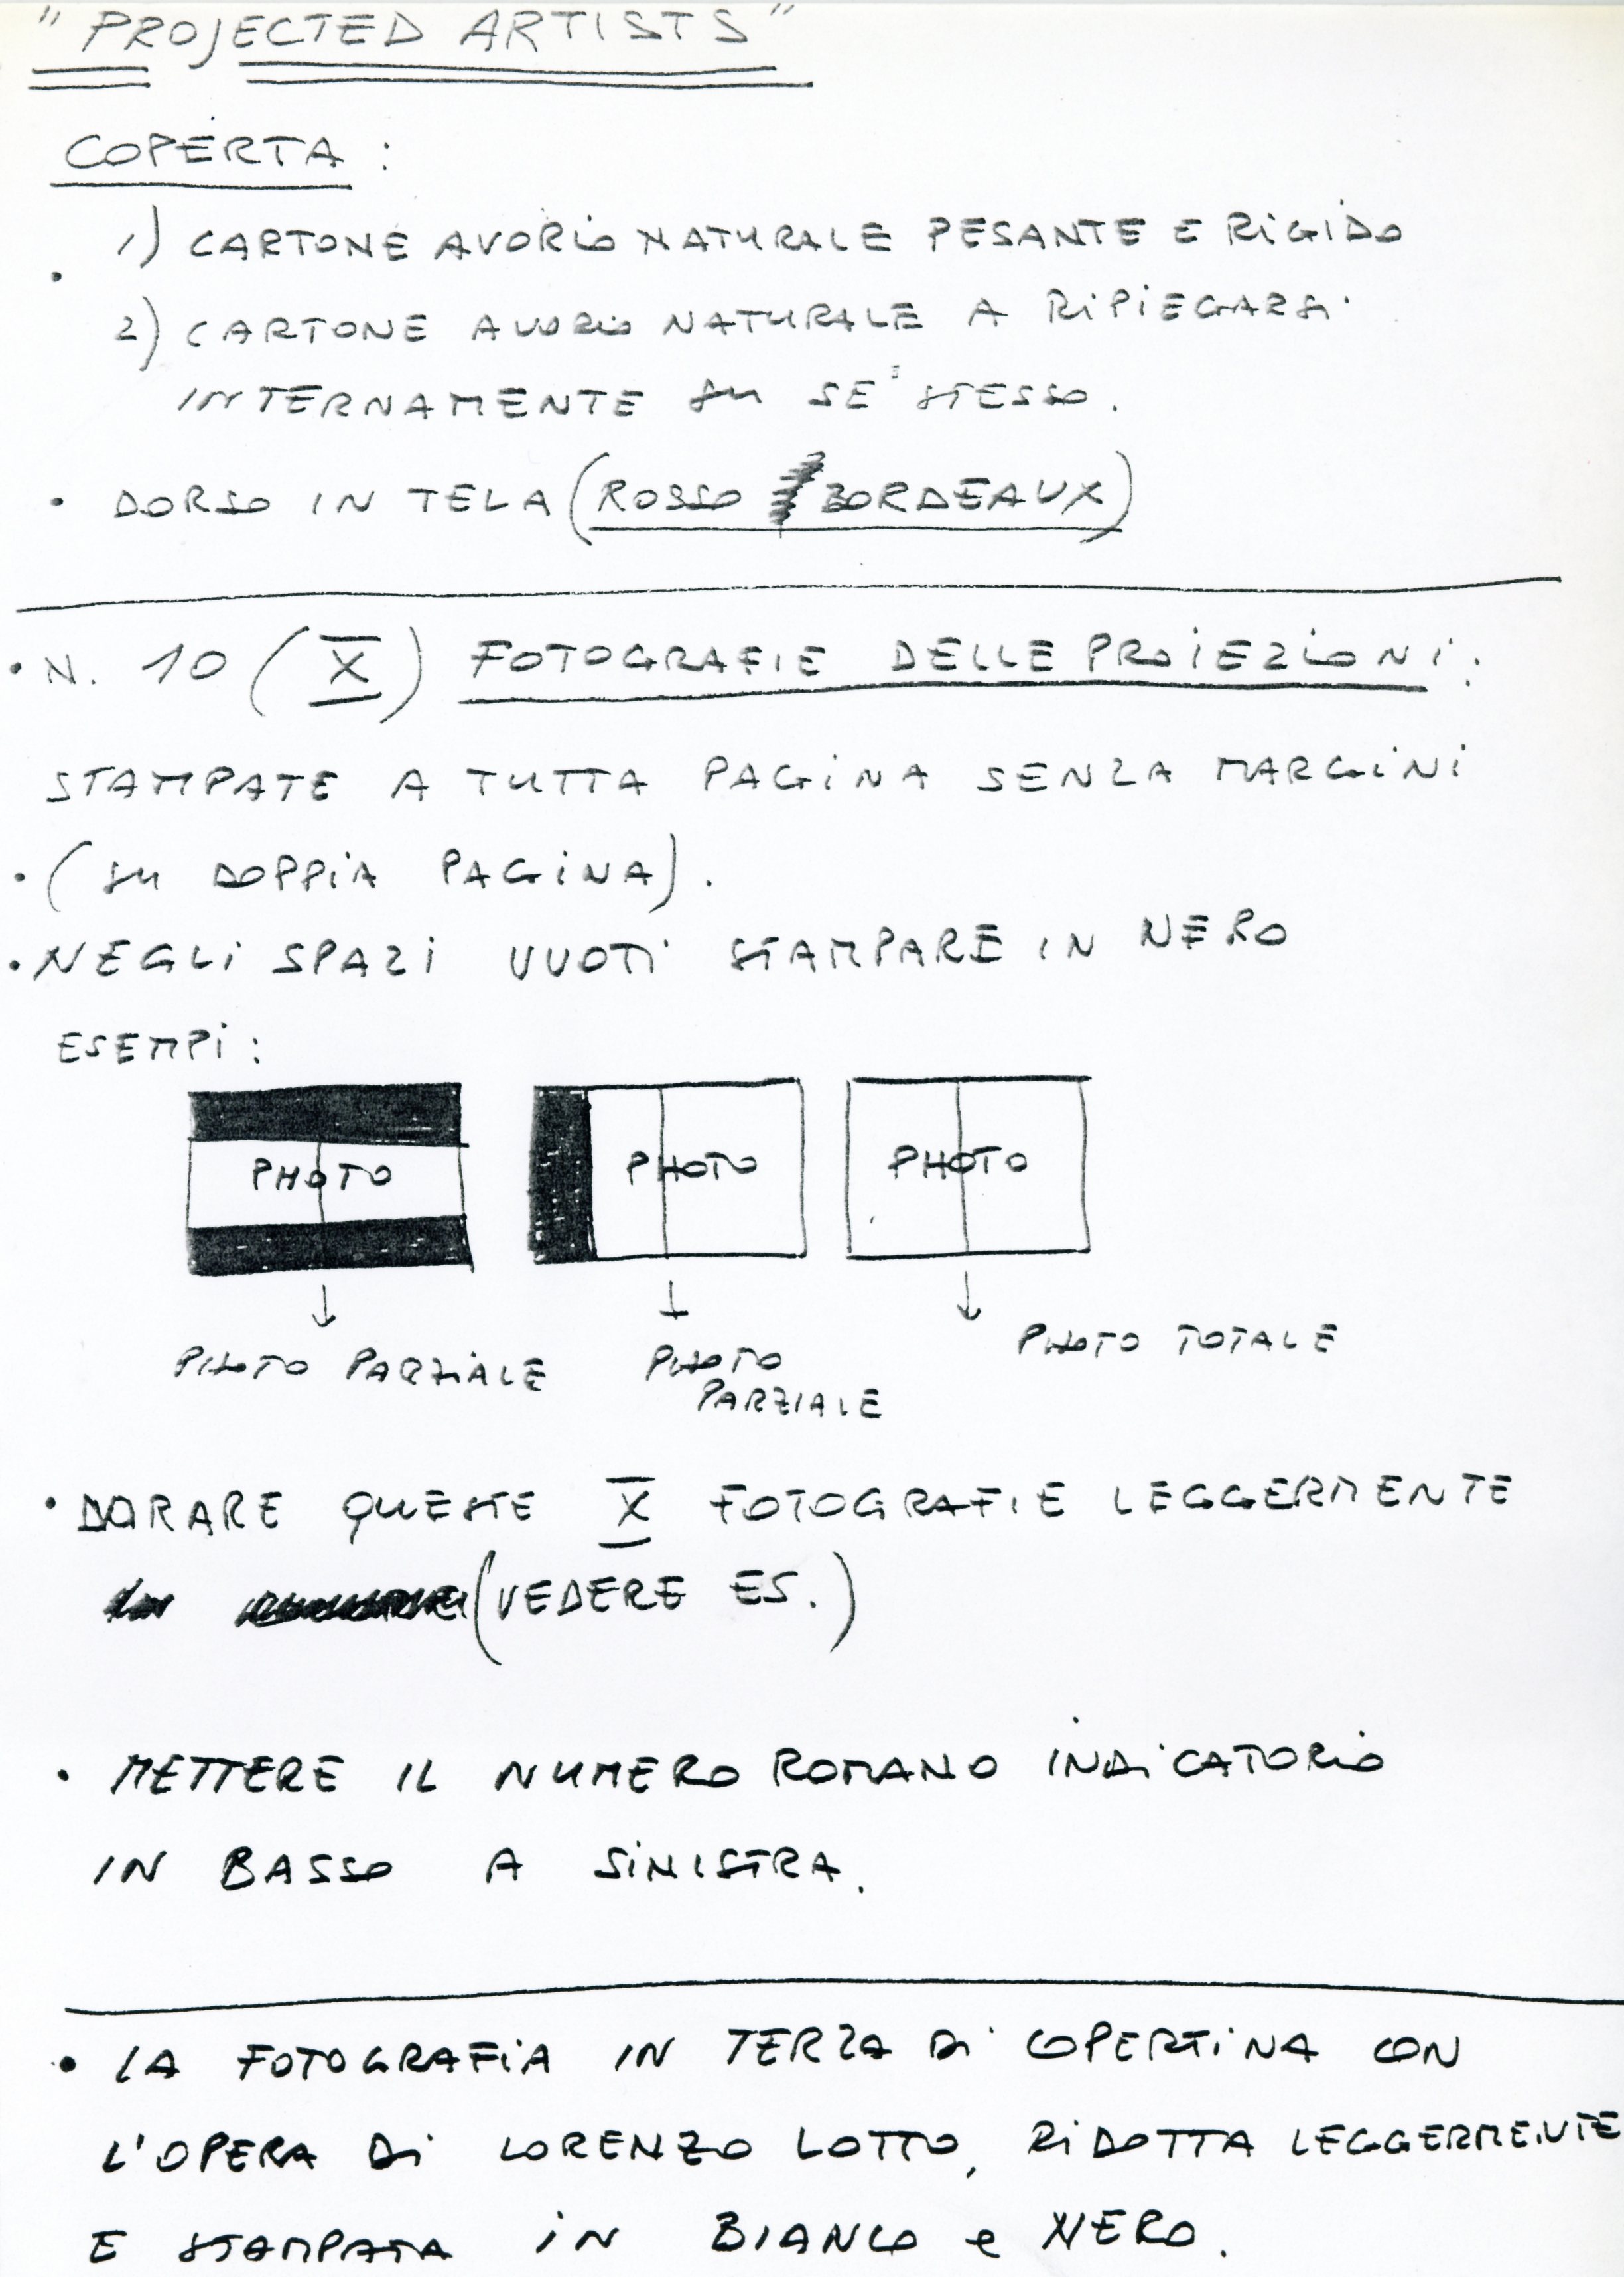 "PROJECTED ARTISTS"
COPERTA :
1) CARTONE AVORIO NATURALE PESANTE E RIGIDO
2) CARTONE AVORIO NATURALE A RIPIEGARSI
INTERNAMENTE SU SE' STESSO.
• DORSO IN TELA (ROSSO BORDEAUX)
• N. 10 (X) FOTOGRAFIE DELLE PROIEZIONI:
STAMPATE A TUTTA PAGINA SENZA MARGINI
• (SU DOPPIA PAGINA).
• NEGLI SPAZI VUOTI STAMPARE IN NERO
ESEMPI:
PHOTO PHOTO PHOTO
PHOTO PARZIALE PHOTO PARZIALE PHOTO TOTALE
• DORARE QUESTE X FOTOGRAFIE LEGGERMENTE
(VEDERE ES.)
• METTERE IL NUMERO ROMANO INDICATORIO
IN BASSO A SINISTRA.
• LA FOTOGRAFIA IN TERZA DI COPERTINA CON
L'OPERA DI LORENZO LOTTO, RIDOTTA LEGGERMENTE
E STAMPATA IN BIANCO e NERO.